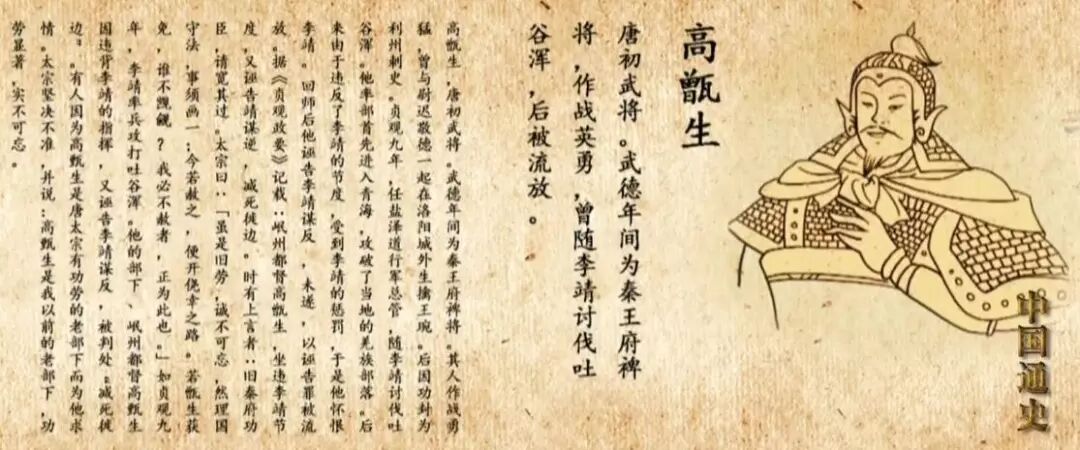 高甑生
唐初武将。武德年间为秦王府裨
将,作战英勇,曾随李靖讨伐吐
谷浑,后被流放。
高甑生,唐初武将。武德年间为秦王府裨将。其人作战勇
猛,曾与尉迟敬德一起在洛阳城外生擒王琬。后因功封为
利州刺史。贞观九年,任盐泽道行军总管,随李靖讨伐吐
谷浑。他率部首先进入青海,攻破了当地的羌族部落。后
来由于违反了李靖的节度,受到李靖的惩罚,于是他怀恨
李靖。回师后他诬告李靖谋反,未遂,以诬告罪被流
放。据《贞观政要》记载:岷州都督高甑生,坐违李靖节
度,又诬告靖谋逆,减死徙边。时有上言者:旧秦府功
臣,请宽其过。太宗曰:「虽是旧劳,诚不可忘,然理国
守法,事须画一;今若赦之,便开侥幸之路。若甑生获
免,谁不觊觎?我必不赦者,正为此也。」如贞观九
年,李靖率兵攻打吐谷浑。他的部下、岷州都督高甑生
因违背李靖的指挥,又诬告李靖谋反,被判处“减死徙
边”。有人因为高甑生是唐太宗有功劳的老部下而为他求
情。太宗坚决不准,并说:高甑生是我以前的老部下,功
劳显著,实不可忘。
中国通史